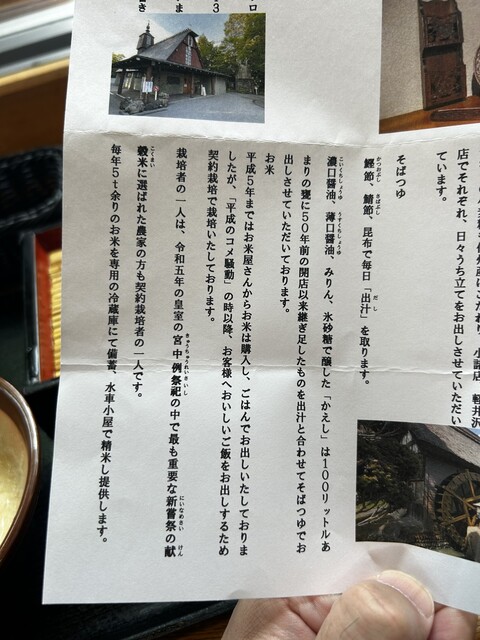 店でそれぞれ、日々うち立てをお出しさせていただい
ています。
そばつゆ
鰹節、鯖節、昆布で毎日「出汁」を取ります。
濃口醤油、薄口醤油、みりん、氷砂糖で醸した「かえし」は100リットルあ
まりの甕に50年前の開店以来継ぎ足したものを出汁と合わせてそばつゆでお
出しさせていただいております。
お米
平成5年まではお米屋さんからお米は購入し、ごはんでお出しいたしておりま
したが、「平成のコメ騒動」の時以降、お客様へおいしいご飯をお出しするため
契約栽培で栽培いたしております。
栽培者の一人は、令和五年の皇室の宮中例祭祀の中で最も重要な新嘗祭の献
穀米に選ばれた農家の方も契約栽培者の一人です。
毎年5t余りのお米を専用の冷蔵庫にて備蓄、水車小屋で精米し提供します。